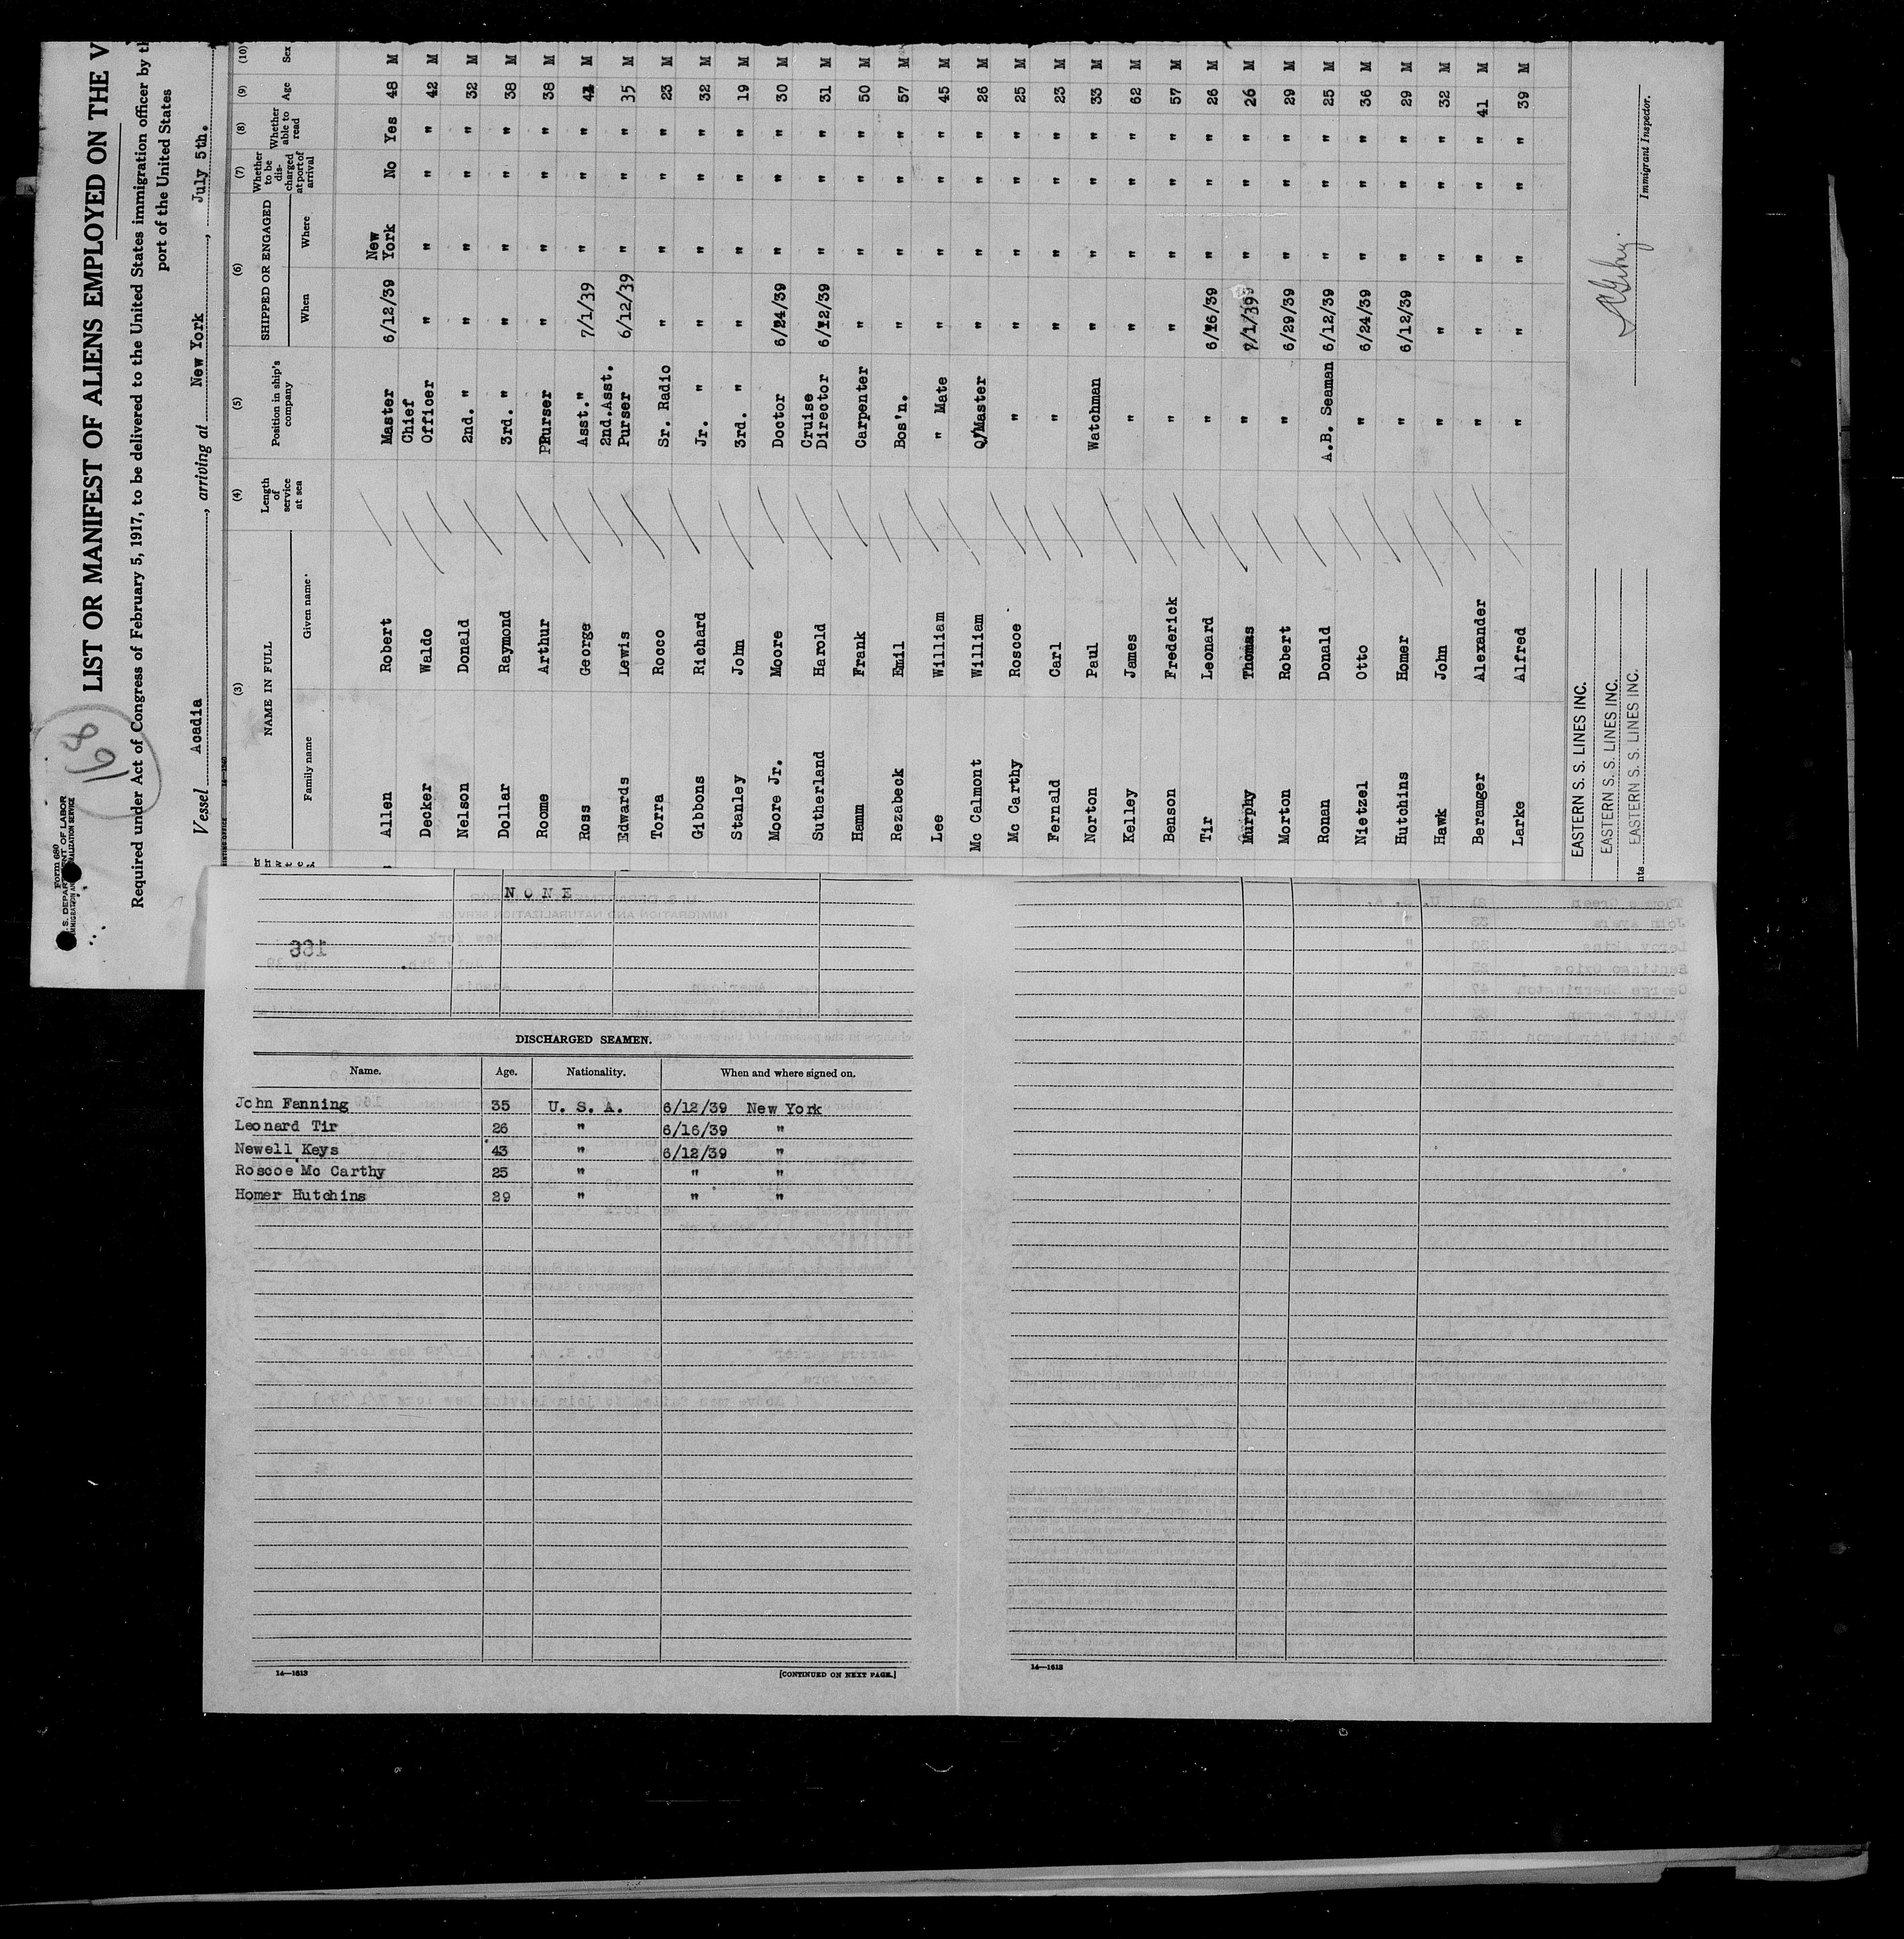 Form 680
U. S. DEPARTMENT OF LABOR
IMMIGRATION AND NATURALIZATION SERVICE
168
LIST OR MANIFEST OF ALIENS EMPLOYED ON THE V
Required under Act of Congress of February 5, 1917, to be delivered to the United States immigration officer by th
port of the United States
Vessel Acadia, arriving at New York, July 5th.
(3) (4) (5) (6) (7) (8) (9) (10)
NAME IN FULL Length of service at sea Position in ship's company SHIPPED OR ENGAGED Whether to be discharged at port of arrival Whether able to read Age Sex
Family name Given name When Where
Allen Robert Master 6/12/39 New York No Yes 48 M
Decker Waldo Chief Officer " " " " 42 M
Nelson Donald 2nd. " " " " " 32 M
Dollar Raymond 3rd. " " " " " 38 M
Roome Arthur Purser " " " " 38 M
Ross George Asst." 7/1/39 " " " M
Edwards Lewis 2nd.Asst. Purser 6/12/39 " " " 35 M
Torra Rocco Sr. Radio " " " " 23 M
Gibbons Richard Jr. " " " " " 32 M
Stanley John 3rd. " " " " " 19 M
Moore Jr. Moore Doctor 6/24/39 " " " 30 M
Sutherland Harold Cruise Director 6/12/39 " " " 31 M
Hamm Frank Carpenter " " " " 50 M
Rezabeck Emil Bos'n. " " " " 57 M
Lee William " Mate " " " " 45 M
Mc Calmont William Q/Master " " " " 26 M
Mc Carthy Roscoe " " " " " 25 M
Fernald Carl " " " " " 23 M
Norton Paul Watchman " " " " 33 M
Kelley James " " " " " 62 M
Benson Frederick " " " " " 57 M
Tir Leonard " 6/16/39 " " " 26 M
Murphy Thomas " 7/1/39 " " " 26 M
Morton Robert " 6/29/39 " " " 29 M
Ronan Donald A.B. Seaman 6/12/39 " " " 25 M
Nietzel Otto " 6/24/39 " " " 36 M
Hutchins Homer " 6/12/39 " " " 29 M
Hawk John " " " " " 32 M
Beramger Alexander " " " " " 41 M
Larke Alfred " " " " " 39 M
EASTERN S. S. LINES INC.
EASTERN S. S. LINES INC.
EASTERN S. S. LINES INC.
nts
Immigrant Inspector.
NONE
166
DISCHARGED SEAMEN.
Name. Age. Nationality. When and where signed on.
John Fanning 35 U. S. A. 6/12/39 New York
Leonard Tir 26 " 6/16/39 "
Newell Keys 43 " 6/12/39 "
Roscoe Mc Carthy 25 " " "
Homer Hutchins 29 " " "
14—1613 [CONTINUED ON NEXT PAGE.]
14—1613